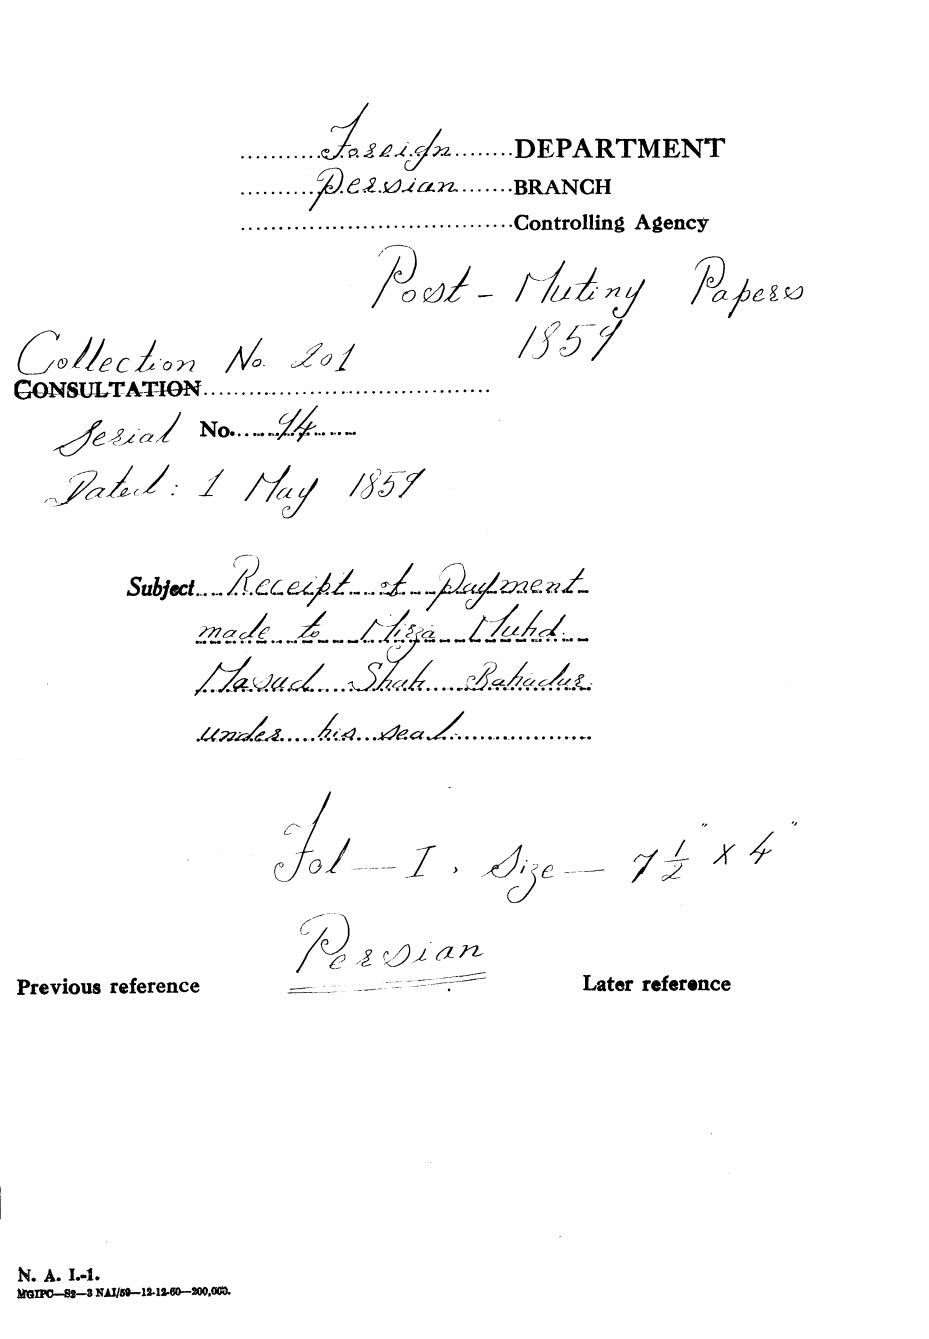 Foreign DEPARTMENT
Persian BRANCH
Controlling Agency
Post - Mutiny Papers
1859
Collection No. 201
CONSULTATION
Serial No. 94
Dated : 1 May 1859
Subject Receipt of payment
made to Mirza Muhd.
Masud Shah Bahadur
under his seal
Fol — I . Size — 7 1/2" x 4"
Persian
Previous reference
Later reference
N. A. I.-1.
MGIPC—S2—3 NAI/59—12-12-60—200,000.